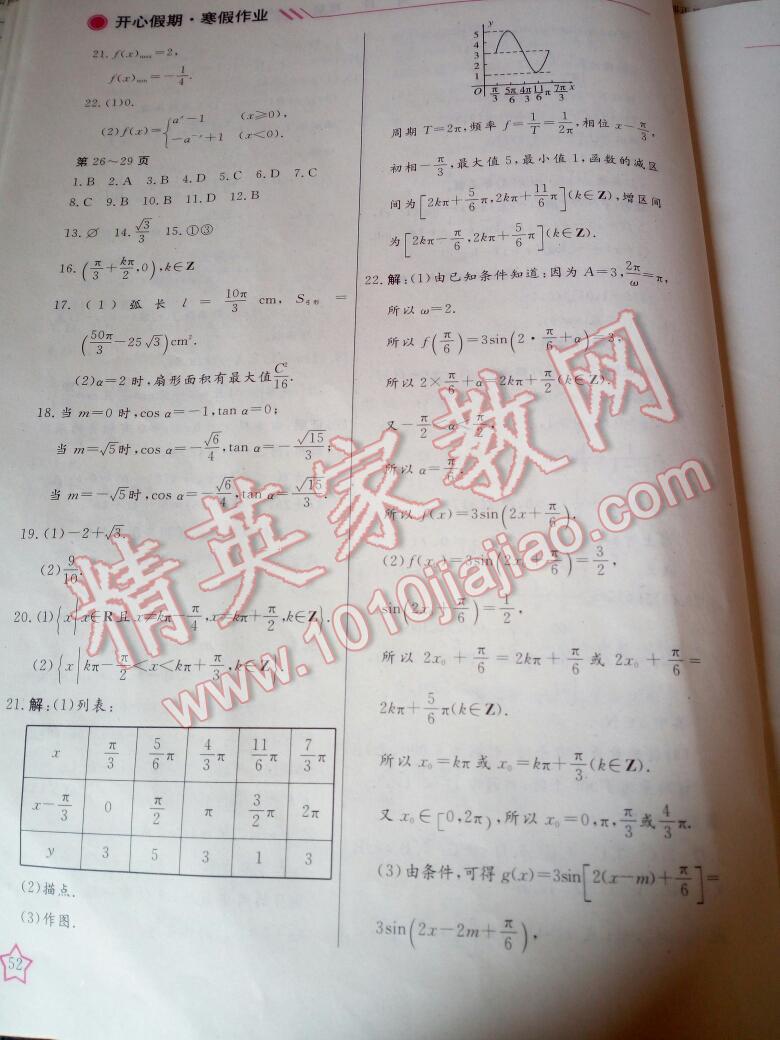 开心假期·寒假作业
21. f(x)max=2,
f(x)min=-1/4.
22.(1)0.
(2)f(x)={a^x-1 (x≥0),
-a^(-x)+1 (x<0).
第 26~29 页
1. B 2. A 3. B 4. D 5. C 6. D 7. C
8. C 9. B 10. B 11. D 12. B
13. ∅ 14. √3/3 15. ①③
16. (π/3+kπ/2,0),k∈Z
17. (1) 弧 长 l = 10π/3 cm, S弓形 =
(50π/3-25√3)cm².
(2)α=2 时,扇形面积有最大值C²/16.
18. 当 m=0 时,cos α=-1,tan α=0;
当 m=√5时,cos α=-√6/4,tan α=-√15/3;
当 m=-√5时,cos α=-√6/4,tan α=√15/3.
19. (1)-2+√3.
(2)9/10.
20. (1){x|x∈R且x≠kπ-π/4,x≠kπ+π/2,k∈Z}.
(2){x|kπ-π/2<x<kπ+π/3,k∈Z}.
21. 解:(1)列表:
x π/3 5/6π 4/3π 11/6π 7/3π
x-π/3 0 π/2 π 3/2π 2π
y 3 5 3 1 3
(2)描点.
(3)作图.
52
y
5
4
3
2
1
O π/3 5π/6 4π/3 11/6π 7π/3 x
周期 T=2π,频率 f=1/T=1/2π,相位 x-π/3,
初相-π/3,最大值 5,最小值 1,函数的减区
间为[2kπ+5/6π,2kπ+11/6π](k∈Z),增区间
为[2kπ-π/6,2kπ+5/6π](k∈Z).
22. 解:(1)由已知条件知道:因为 A=3,2π/ω=π,
所以 ω=2.
所以 f(π/6)=3sin(2·π/6+α)=3,
所以 2×π/6+α=2kπ+π/2(k∈Z).
又-π/2<α<π/2,
所以 α=π/6,
所以 f(x)=3sin(2x+π/6).
(2)f(x₀)=3sin(2x₀+π/6)=3/2,
sin(2x₀+π/6)=1/2,
所以 2x₀ + π/6 = 2kπ + π/6 或 2x₀ + π/6 =
2kπ+5/6π(k∈Z).
所以 x₀=kπ 或 x₀=kπ+π/3(k∈Z).
又 x₀∈[0,2π),所以 x₀=0,π,π/3或4/3π.
(3)由条件,可得 g(x)=3sin[2(x-m)+π/6]=
3sin(2x-2m+π/6),
精英家教网
www.1010jiajiao.com